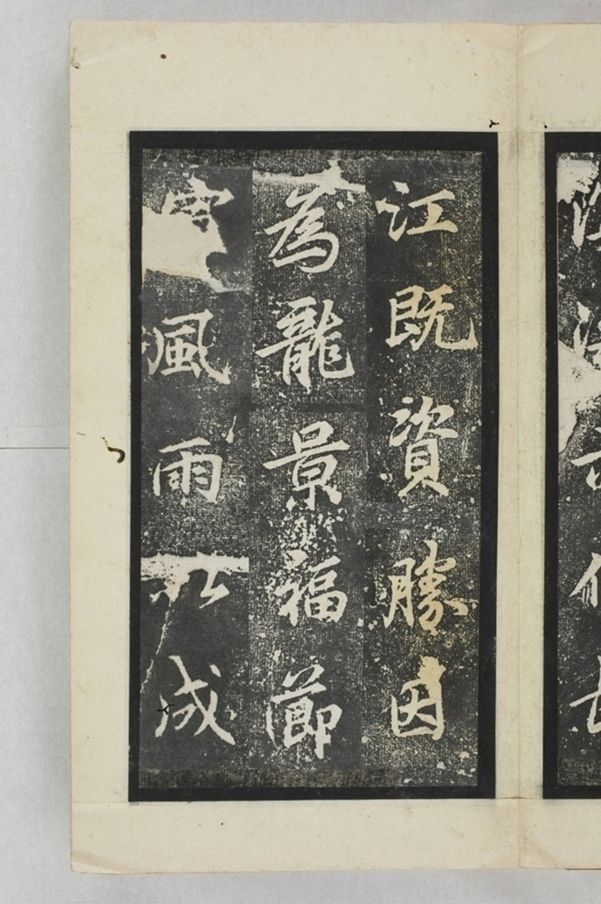 江既資勝因
為龍景福節
風雨
成